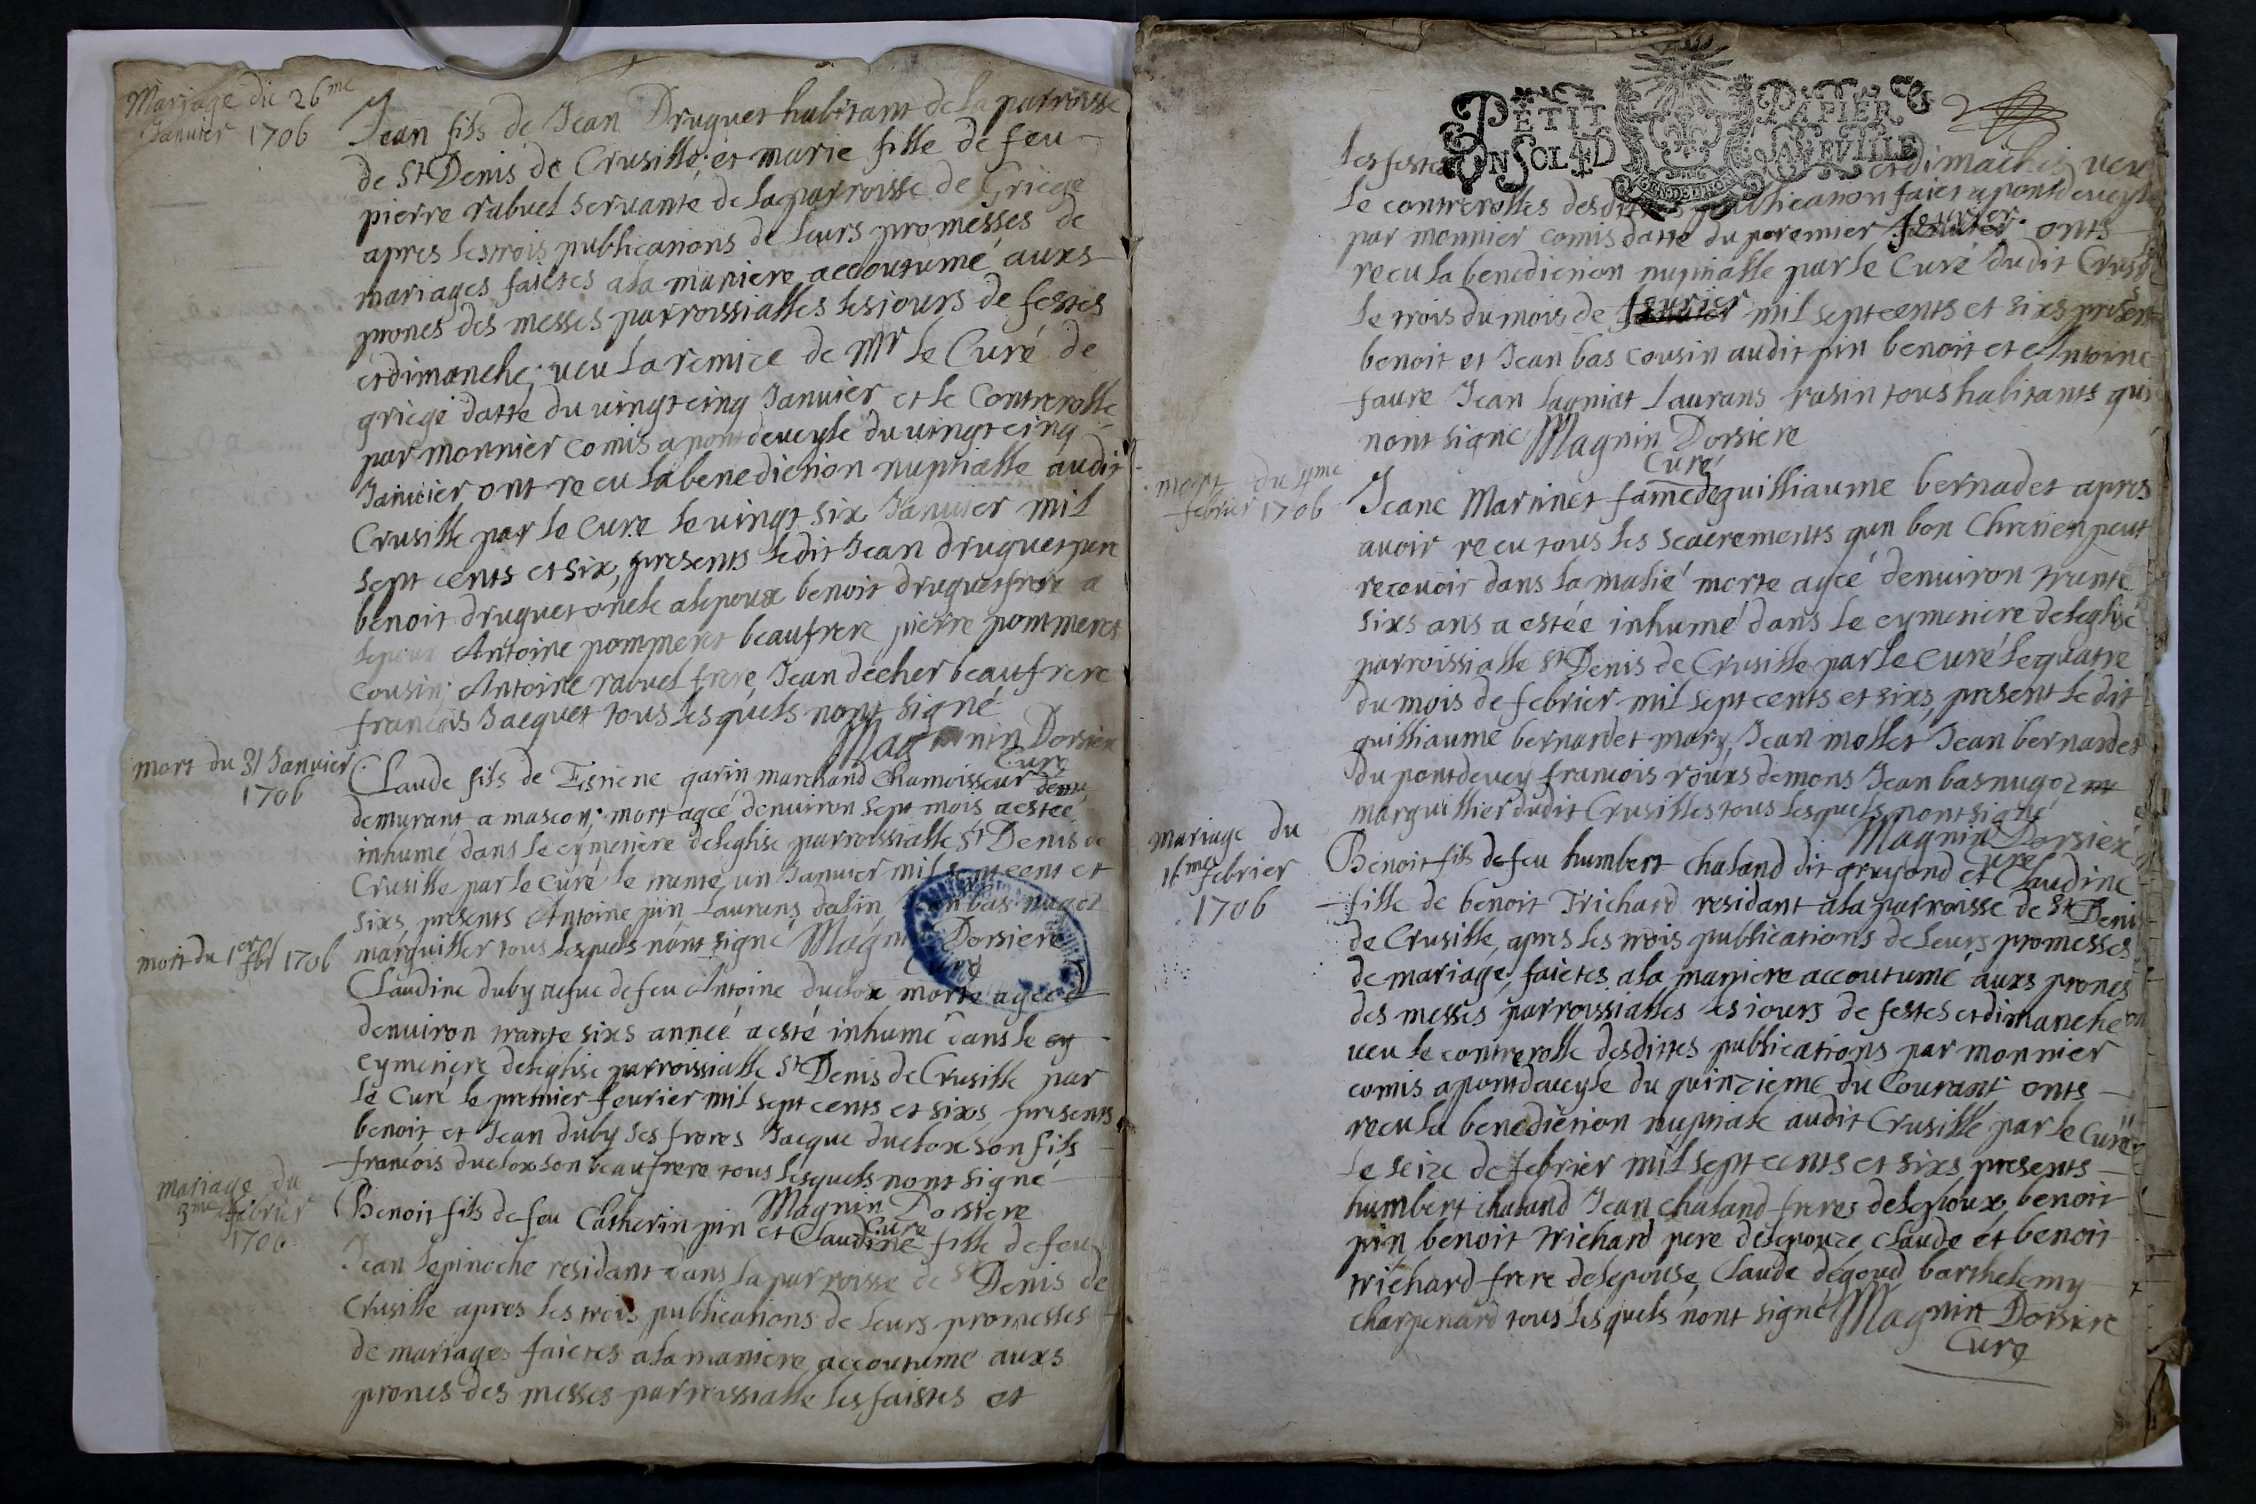 Mariage du 26me
Janvier 1706
Jean fils de Jean Druguet habitant de la parroisse
de St Denis de Crusille et marie fille de feu
pierre rabuel servante de la parroisse de Griege
apres les trois publications de leurs promesses de
mariages faictes a la maniere accoutumé auxs
prones des messes parroissialles les jours de festes
et dimanche, veu la remize de Mr le Curé de
griege datté du vingt cinq Janvier et le Contrerolle
par monnier comis a pont deveyle du vingt cinq
Janvier ont recu la benediction nuptialle audit
Crusille par le curé le vingt six Janvier mil
sept cents et six, presents ledit Jean druguet pere
benoit druguet oncle a lepoux benoit druguet frere a
lepoux Antoine pommeret beaufrere pierre pommeret
cousin, Antoine rabuel frere Jean decher beaufrere
francois Jacquet tous lesquels nont signé
Magnin Dorsiere
Curé
mort du 31 Janvier
1706
Claude fils de Estiene garin marchand Chamoisseur demu
demurant a mascon, mort agcé denviron sept mois a estée
inhumé dans le cymetiere deleglise parroissialle St Denis de
Crusille par le Curé le trante un Janvier mil sept cent et
sixs presents Antoine pin Laurans dalin Jean bas nugoz
marguiller tous lesquels nont signé Magnin Dorsiere
Curé
mort du 1er fbr 1706
Claudine duby vefue de feu Antoine duclox morte agcée
denviron trante sixs annéé a esté inhumé dans le cy
cymetiere deleglise parroissialle St Denis de Crusille par
le Curé le premier fevrier mil sept cents et sixs, presents
benoit et Jean duby ses freres Jacque duclox son fils
francois duclox son beaufrere tous lesquels nont signé
Magnin Dorsiere
Curé
mariage du
3me febrier
1706
Benoit fils de feu Catherin pin et Claudine fille de feu
Jean Lepinoche residant dans la parroisse de St Denis de
Crusille apres les trois publications de leurs promesses
de mariages faictes a la maniere accoutumé auxs
prones des messes parroissialle les faistes et
PETIT PAPIER
UN SOL 4 D LA FEUILLE
2
les festes et dimaches veu
le contrerolles desdittes publication faict a pont deveyle
par monnier comis datté du poremier fevrier onts
recu la benediction nuptialle par le Curé dudit Crusille
le trois du mois de fevrier mil sept cents et sixs present
benoit et Jean bas cousin audit pin benoit et Antoine
faure Jean lagniat Laurans rasin tous habitants qui
nont signé Magnin Dorsiere
Curé
mort du 4me
febrier 1706
Jeane Martinet fame de guilliaume bernadet apres
avoir recu tous les Sacrements qun bon Chretien peut
recevoir dans la malié morte agcé denviron trante
sixs ans a estée inhumé dans le cymetiere deleglise
parroissialle St Denis de Crusille par le Curé le quatre
du mois de febrier mil sept cents et sixs, present ledit
guilliaume bernardet mary, Jean mollet Jean bernardet
du pontdevey francois rouxs demons Jean bas nugoz m
marguillier dudit Crusilles tous lesquels nont signé
Magnin Dorsiere
Curé
Mariage du
16me febrier
1706
Benoit fils de feu humbert chaland dit gruyond et Claudine
fille de benoit Trichard residant a la parroisse de St Denis
de Crusille, apres les trois publications de leurs promesses
de mariage, faictes a la maniere accoutumé auxs prones
des messes parroissialles les jours de festes et dimanche
veu le contrerolle desdittes publications par monnier
comis a pontdeveyle du quinzieme du Courant onts
recu la benediction nuptiale audit Crusille par le Curé
le seize de febrier mil sept cents et sixs presents
humbert chaland Jean chaland freres delepoux, benoit
pin, benoit trichard pere delepouze, claude et benoit
trichard frere delepouse, Claude degoud barthelemy
charpenard tous lesquels nont signé Magnin Dorsiere
Curé